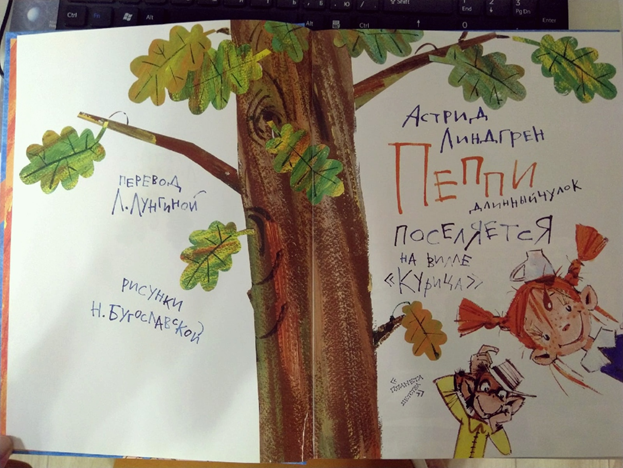 ПЕРЕВОД
Л. ЛУНГИНОЙ
РИСУНКИ
Н. БУГОСЛАВСКОЙ
АСТРИД
ЛИНДГРЕН
ПЕППИ
ДЛИННЫЙЧУЛОК
ПОСЕЛЯЕТСЯ
НА ВИЛЛЕ
«КУРИЦА»
Ctrl
Alt
Alt
Ctrl
Shift
End
PgDn
Enter